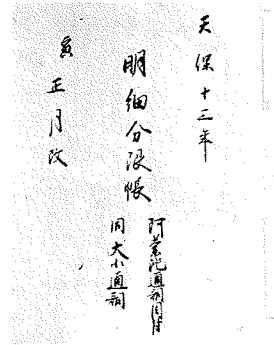 天保十三年
明細分限帳
阿蘭陀通詞目付
同大小通詞
寅正月改